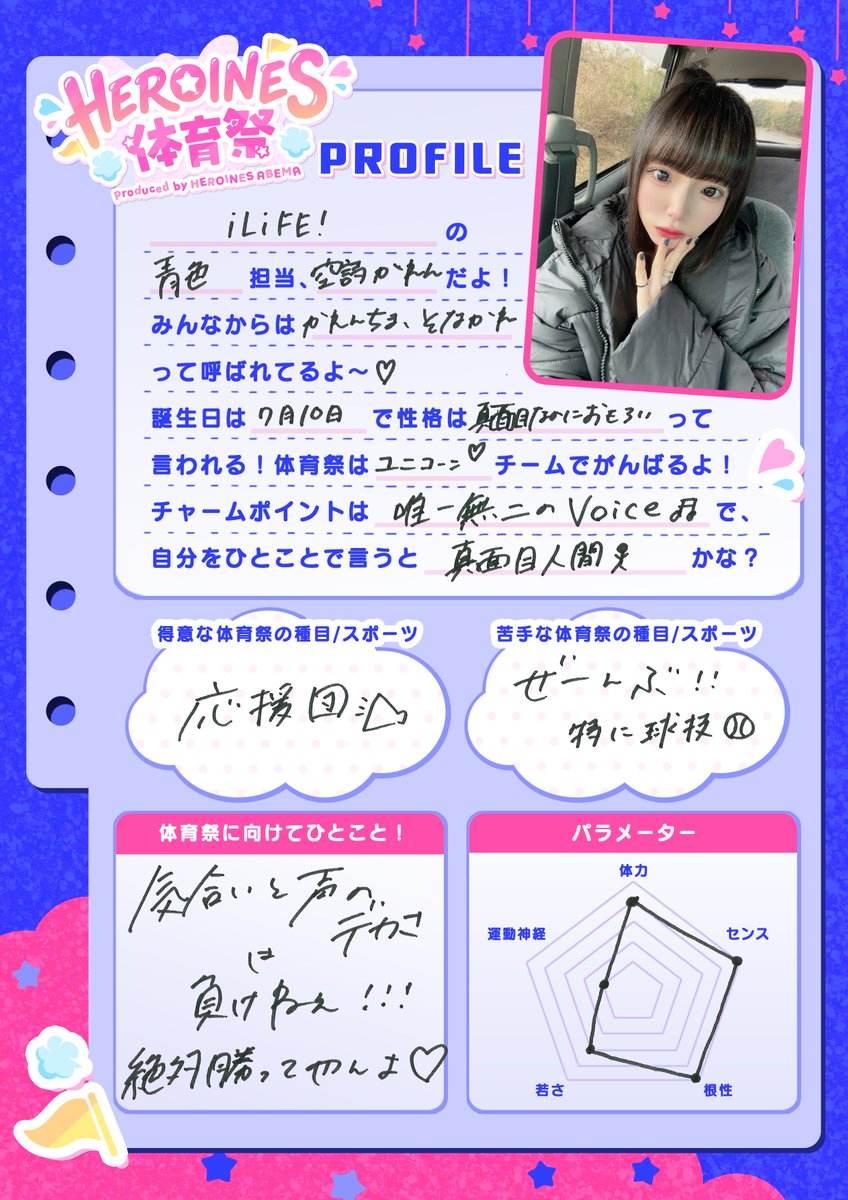 HEROINES
体育祭
Produced by HEROINES ABEMA
PROFILE
iLiFE! の
青色 担当、空詩かれんだよ！
みんなからは かれんちま、そなかれ
って呼ばれてるよ〜♡
誕生日は 7月10日 で性格は 真面目なかにおもろい って
言われる！体育祭は ユニコーン♡ チームでがんばるよ！
チャームポイントは 唯一無二のVoice で、
自分をひとことで言うと 真面目人間 かな？
得意な体育祭の種目/スポーツ
応援団
苦手な体育祭の種目/スポーツ
ぜーんぶ!!
特に球技
体育祭に向けてひとこと！
気合いと声の
デカさ
は
負けねぇ!!!
絶対勝ってやんよ♡
パラメーター
体力
運動神経
センス
若さ
根性